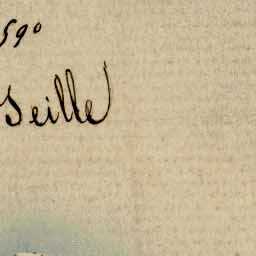 590
Seille